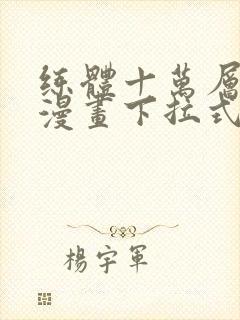 练體十萬層
漫畫下拉式
楊宇軍